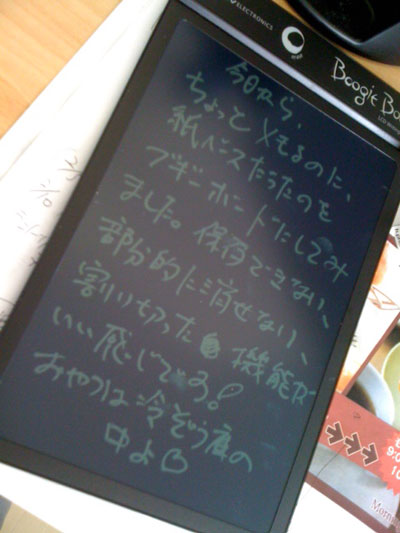 ELECTRONICS
Boogie Bo
今日から、
ちょっとメモるのに、
紙ベースだったのを
ブギーボードにしてみ
ました。保存できない、
部分的に消せない、
割りきった機能が
いい感じです!
おやつは冷ぞう庫の
中よ♡
9:0
10
Morn